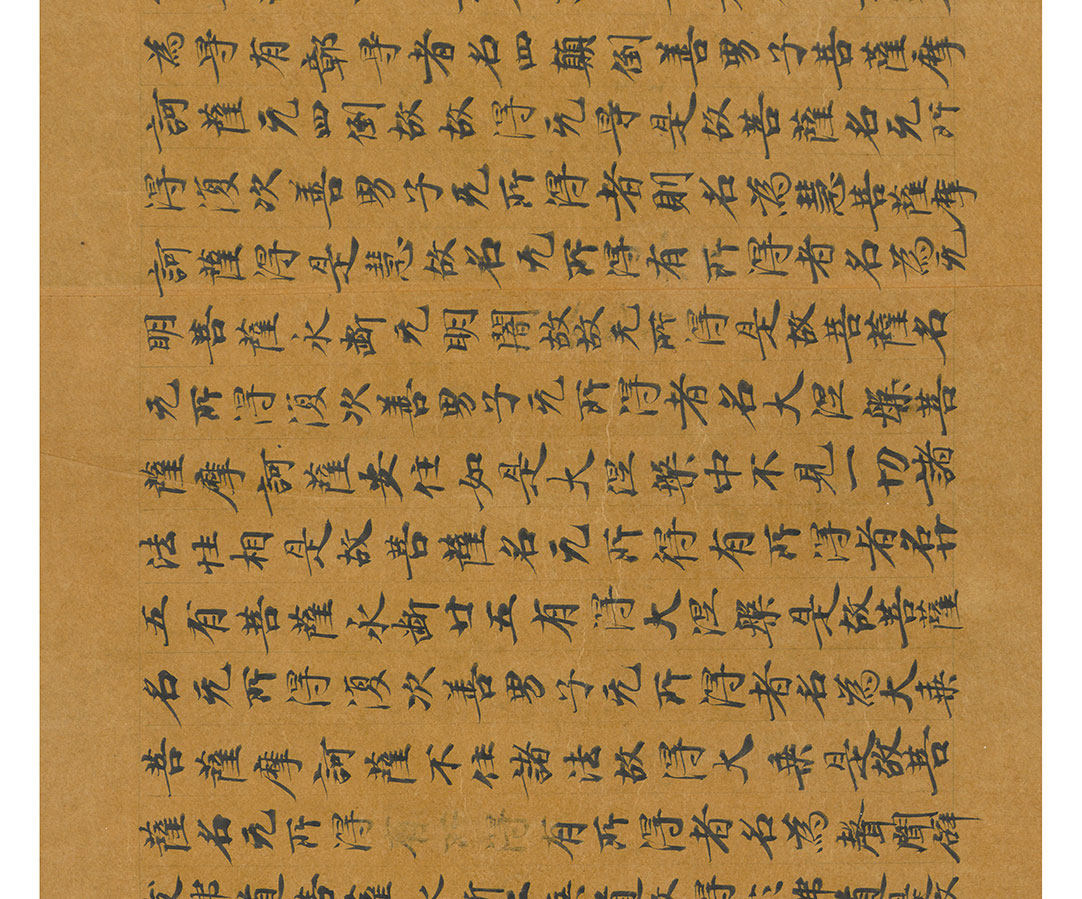 為㝵有鄣㝵者名四顛倒善男子菩薩摩
訶薩无四倒故故得无㝵是故菩薩名无所
得復次善男子无所得者則名為慧菩薩摩
訶薩得是慧故名无所得有所得者名為无
明菩薩永斷无明闇故故无所得是故菩薩名
无所得復次善男子无所得者名大涅槃菩
薩摩訶薩安住如是大涅槃中不見一切諸
法性相是故菩薩名无所得有所得者名廿
五有菩薩永斷廿五有得大涅槃是故菩薩
名无所得復次善男子无所得者名為大乗
菩薩摩訶薩不住諸法故得大乗是故菩
薩名无所得有所得者名為聲聞辟